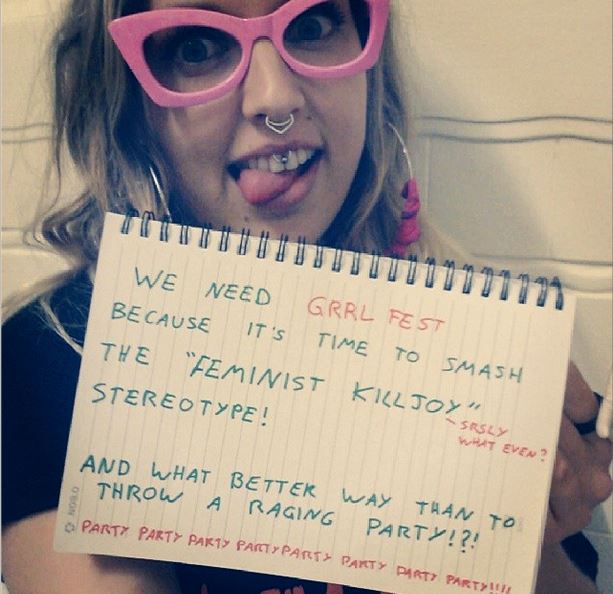 WE NEED GRRL FEST
BECAUSE IT'S TIME TO SMASH
THE "FEMINIST KILLJOY"
STEREOTYPE!
- SRSLY
WHAT EVEN?
AND WHAT BETTER WAY THAN TO
THROW A RAGING PARTY!?!
PARTY PARTY PARTY PARTY PARTY PARTY PARTY PARTY!!!!